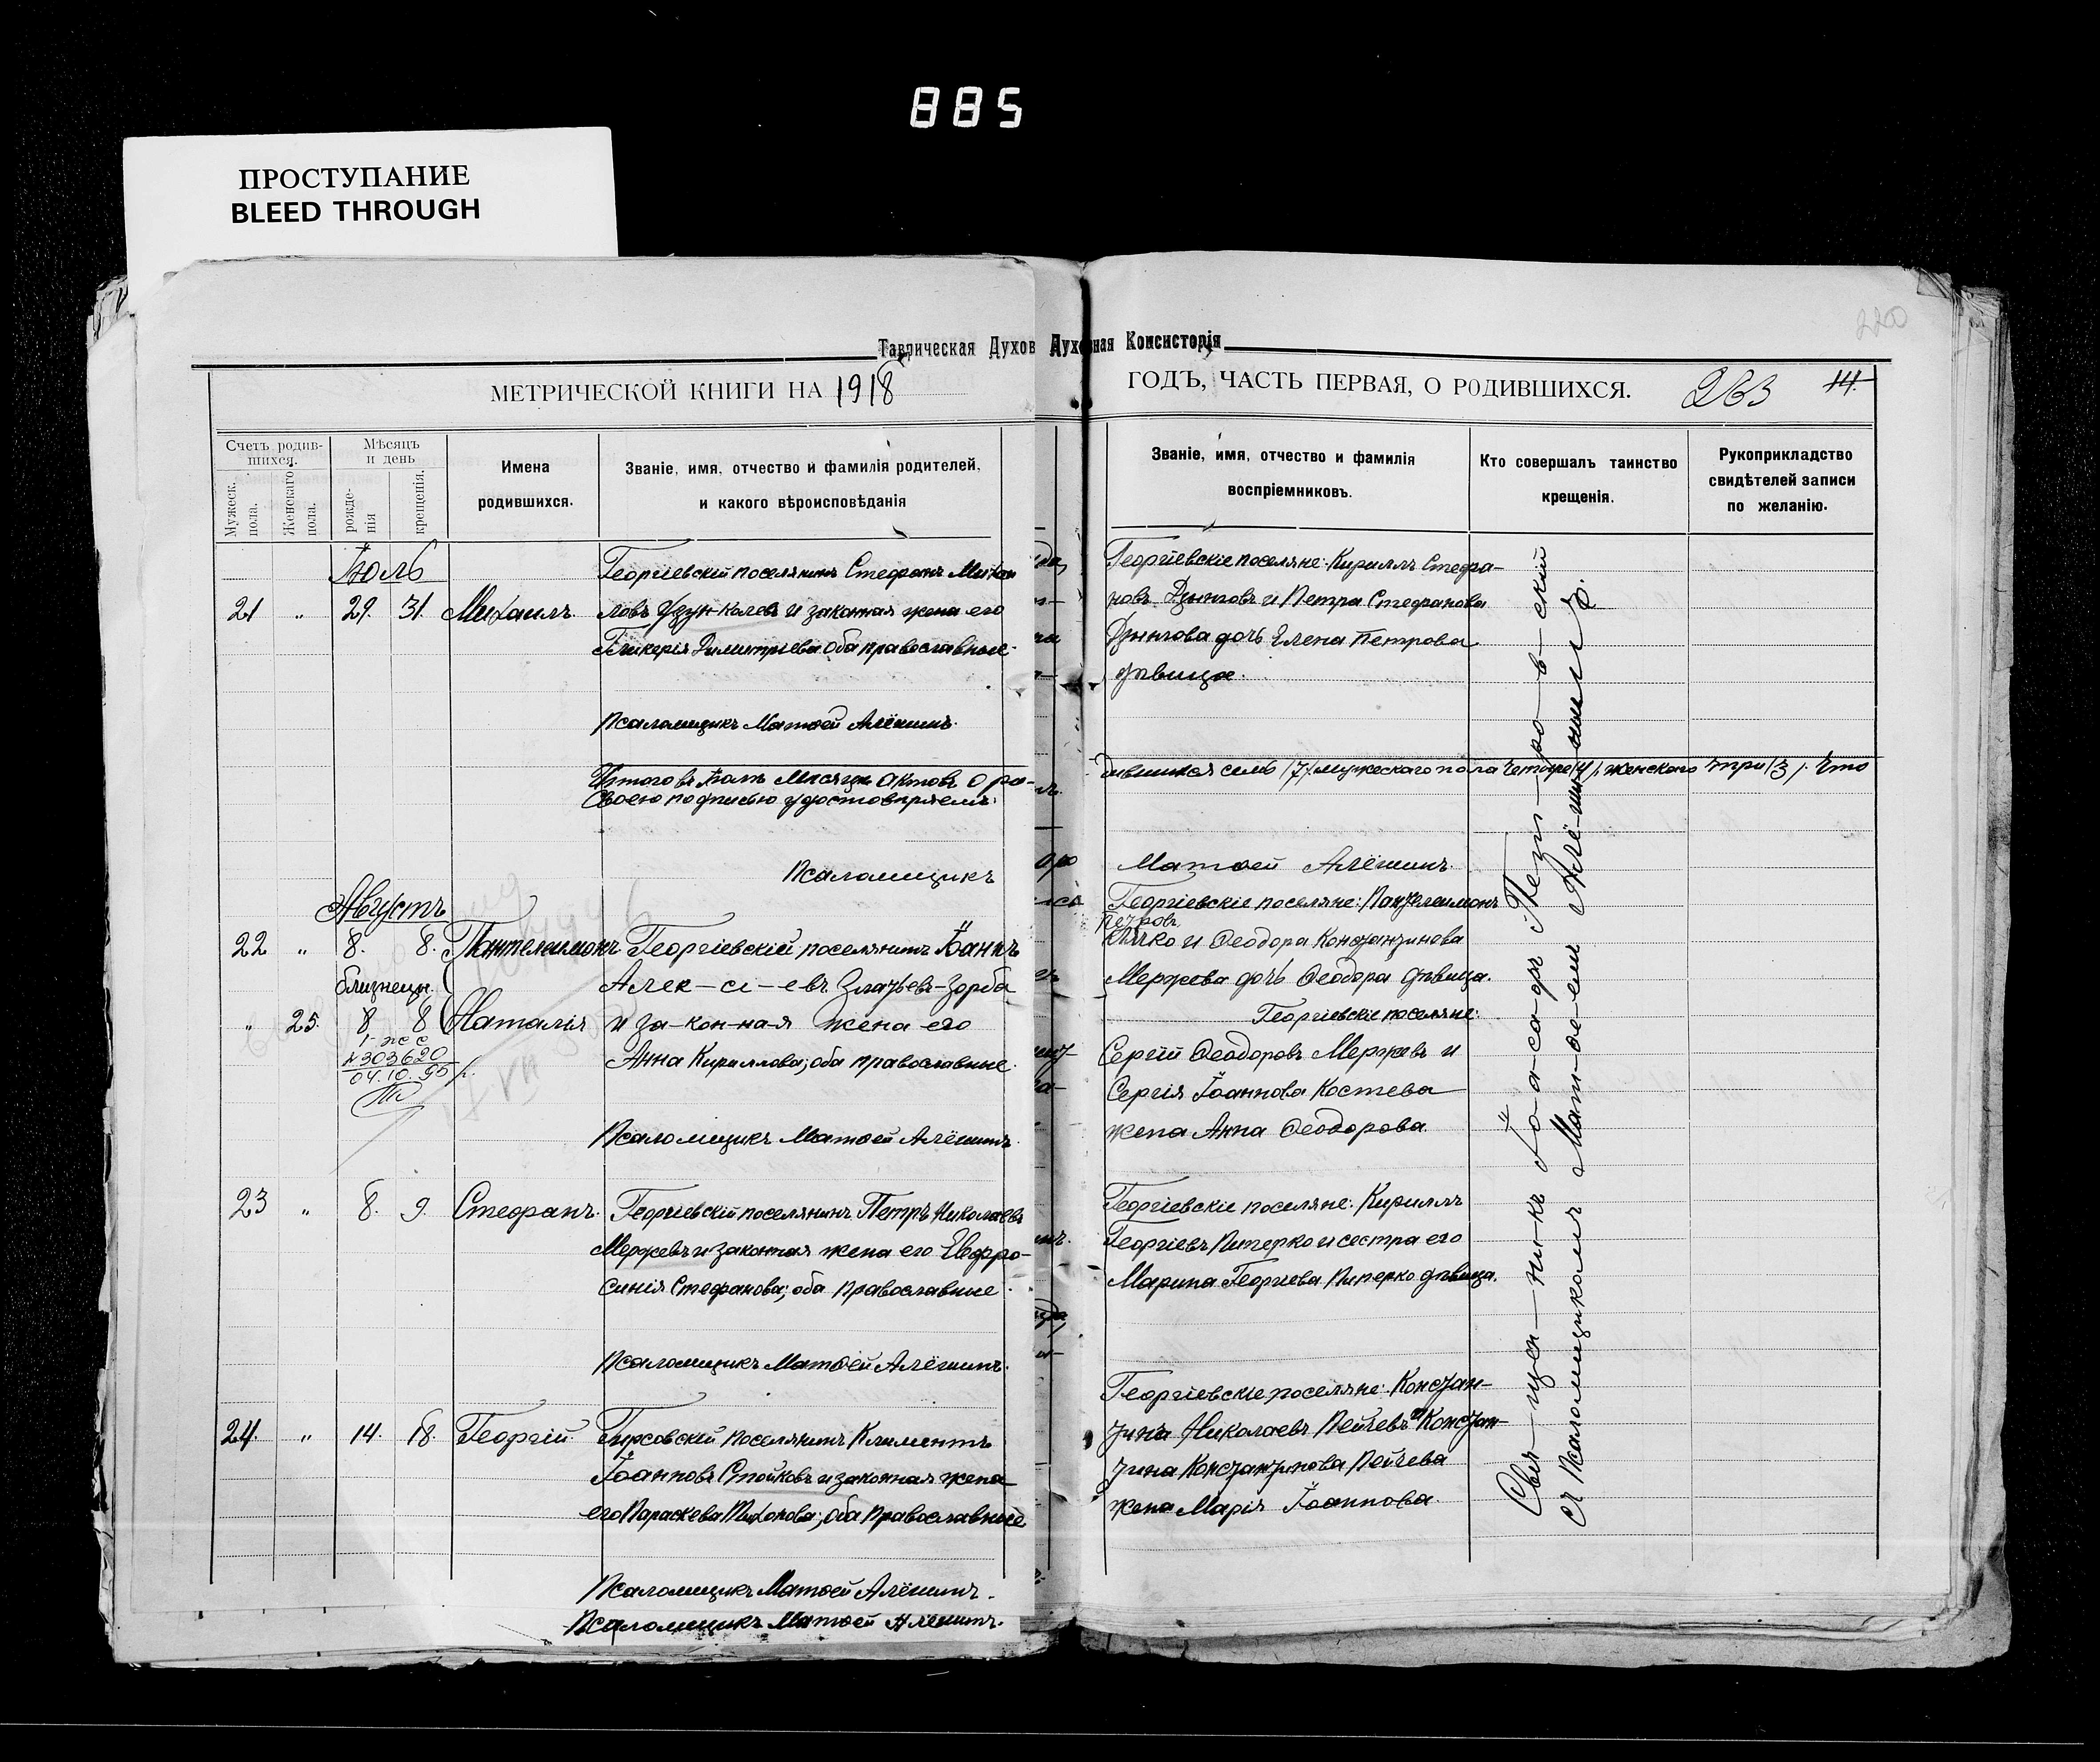 885
ПРОСТУПАНИЕ
BLEED THROUGH
Таврическая Духов Духовная Консисторія
МЕТРИЧЕСКОЙ КНИГИ НА 1918
ГОДЪ, ЧАСТЬ ПЕРВАЯ, О РОДИВШИХСЯ.
263
14.
2200
Счетъ родив-
шихся.
Мужеск. пола.
Женскаго пола.
Мѣсяцъ
и день
рожде-
нія
крещенія.
Имена
родившихся.
Званіе, имя, отчество и фамилія родителей,
и какого вѣроисповѣданія
Званіе, имя, отчество и фамилія
воспріемниковъ.
Кто совершалъ таинство
крещенія.
Рукоприкладство
свидѣтелей записи
по желанію.
Іюль
21 " 29. 31. Михаилъ
Георгіевскій поселянинъ Стефанъ Михаи
ловъ Узун-Колевъ и законная жена его
Гликерія Димитріева оба православные.
Псаломщикъ Матѳей Алёшинъ.
Георгіевскіе поселяне: Кириллъ Стефа-
новъ и Петра Стефанова
дочь Елена Петрова
дѣвица.
Итого въ Іюлѣ Мѣсяцѣ актовъ о ро-
дившихся семь /7/ мужескаго пола четыре /4/, женскаго три /3/. Что
своею подписью удостовѣряемъ:
Псаломщикъ
Матѳей Алёшинъ.
Августъ
22 " 8. 8. Пантелеимонъ
близнецы.
" 25. 8 8 Наталія
N 303620
04.10.95 г.
Георгіевскій поселянинъ Іоаннъ
Алек-сі-евъ Златевъ-Зорба
и за-кон-на-я жена его
Анна Кириллова; оба православные.
Псаломщикъ Матѳей Алёшинъ.
Георгіевскіе поселяне: Пантелеимонъ
Петровъ
и Ѳеодора Константинова
Мержева дочь Ѳеодора дѣвица.
Георгіевскіе поселяне:
Сергій Ѳеодоровъ Мержевъ и
Сергія Іоаннова Костева
жена Анна Ѳеодорова.
23 " 8. 9. Стефанъ.
Георгіевскій поселянинъ Петръ Николаевъ
Мержевъ и законная жена его Евфро-
синія Стефанова; оба православные.
Псаломщикъ Матѳей Алёшинъ.
Георгіевскіе поселяне: Кириллъ
Георгіевъ Пиперко и сестра его
Марина Георгіева Пиперко дѣвица.
24. " 14. 18. Георгій
поселянинъ Климентъ
Іоанновъ Стойковъ и законная жена
его Параскева Тихонова; оба православные
Псаломщикъ Матѳей Алёшинъ.
Псаломщикъ Матѳей Алёшинъ.
Георгіевскіе поселяне: Констан-
тинъ Николаевъ Пейчевъ и Констан-
тина Константинова Пейчева
жена Марія Іоаннова
Свя-щен-ни-къ Іо-а-са-фъ Пет-ро-в-скій
съ Псаломщикомъ Мат-ѳе-емъ Алё-шинымъ.